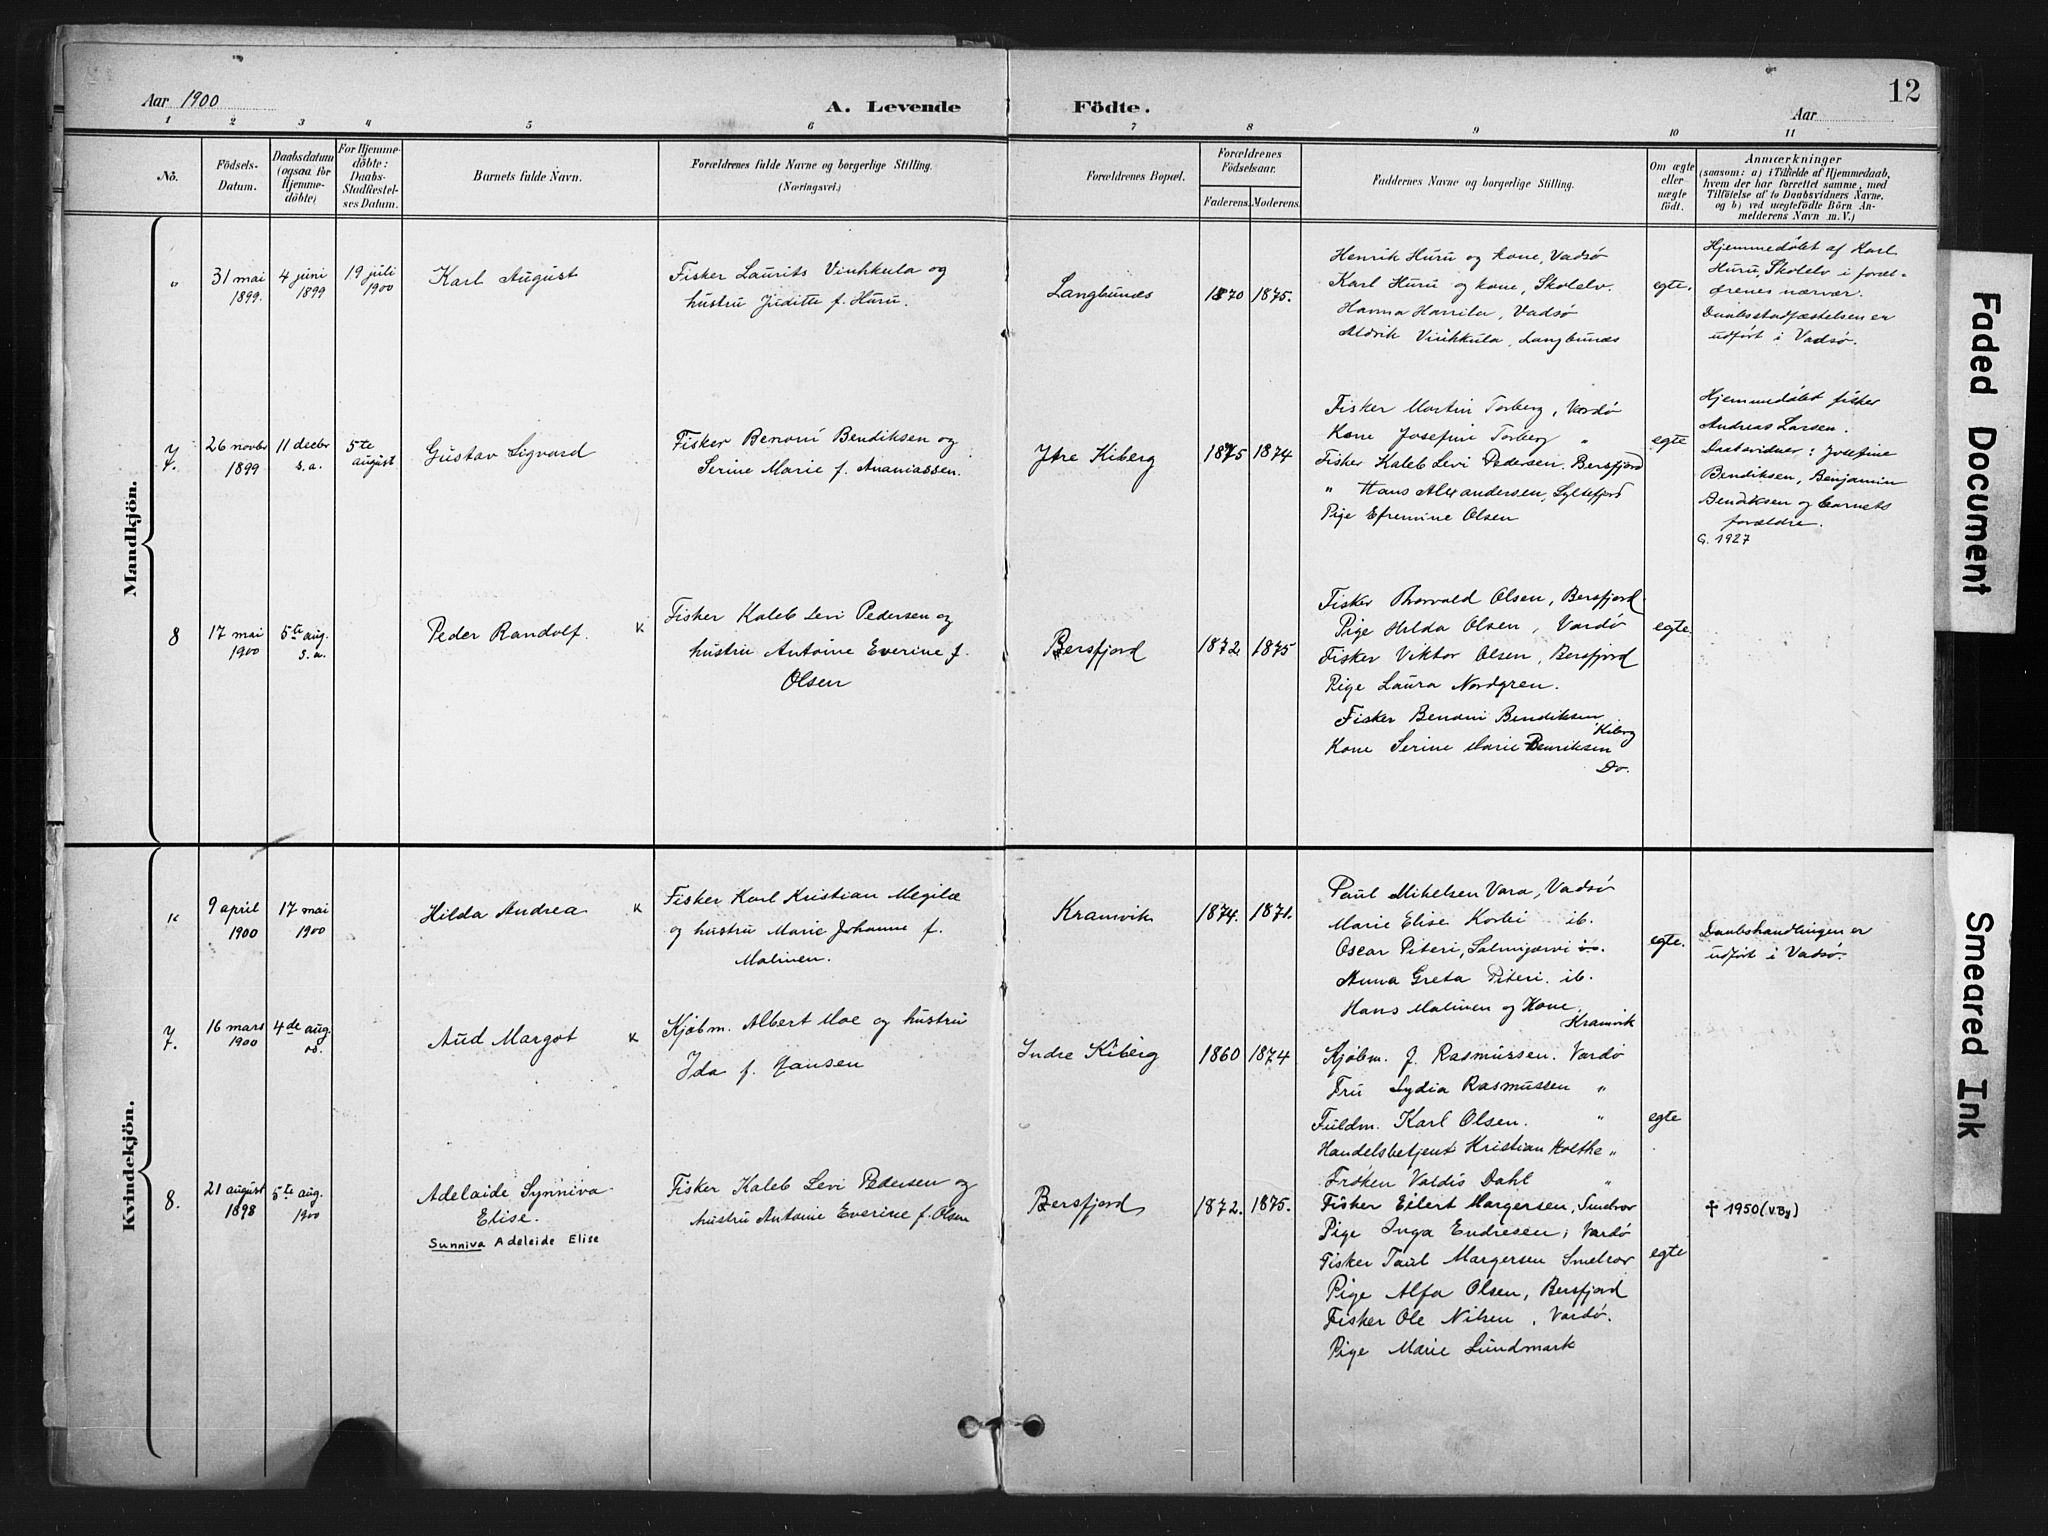 Aar 1900
A. Levende Födte.
Aar
12
1 2 3 4 5 6 7 8 9 10 11
No.
Födsels-
Datum.
Daabsdatum
(ogsaa for
Hjemme-
döbte)
For Hjemme-
döbte:
Daabs-
Stadfæstel-
ses Datum.
Barnets fulde Navn.
Forældrenes fulde Navne og borgerlige Stilling.
(Næringsvei.)
Forældrenes Bopæl.
Forældrenes
Födselsaar.
Faderens.
Moderens.
Faddernes Navne og borgerlige Stilling.
Om ægte
eller
uægte
födt.
Anmærkninger
(saasom: a) i Tilfælde af Hjemmedaab,
hvem der har forrettet samme, med
Tilföielse af to Daabsvidners Navne,
og b) ved uægtefödte Börn An-
melderens Navn m. V.)
Mandkjön.
"
31 mai
1899.
4 juni
1899
19 juli
1900
Karl August
Fisker Laurits Vinhkula og
hustru Juditte f. Huru.
Langbunes
1870
1875.
Henrik Huru og kone, Vadsø
Karl Huru og kone, Skolelv.
Hanna Harrila, Vadsø
Aldrik Vinhkula, Langbunes
egte.
Hjemmedøbt af Karl
Huru, Skolelv i foræl-
drenes nærvær.
Daabsstadfæstelsen er
udført i Vadsø.
7.
26 novbr
1899
11 decbr
s. a.
5te
august
Gustav Sigvard
Fisker Benoni Bendiksen og
Serine Marie f. Ananiassen.
Ytre Kiberg
1875
1874
Fisker Martin Torberg, Vardø
Kone Josefine Torberg "
Fisker Kaleb Levi Pedersen. Bersfjord
" Hans Alexandersen, Syltefjord
Pige Efremine Olsen
egte
Hjemmedøbt fisker
Andreas Larsen.
Daabsvidner: Josefine
Bendiksen, Benjamin
Bendiksen og barnets
forældre.
G. 1927
8
17 mai
1900
5te aug.
s. a.
Peder Randolf.
K
Fisker Kaleb Levi Pedersen og
hustru Antoine Everine f.
Olsen
Bersfjord
1872.
1875
Fisker Thorvald Olsen, Bersfjord.
Pige Hilda Olsen, Vardø
Fisker Viktor Olsen, Bersfjord
Pige Laura Nordgren.
Fisker Benoni Bendiksen
Kiberg
Kone Serine Marie Benriksen
Do.
egte.
Kvindekjön.
"
9 april
1900
17 mai
1900
Hilda Andrea
K
Fisker Karl Kristian Megilæ
og hustru Marie Johanne f.
Malinen.
Kramvik
1874.
1871.
Paul Mikelsen Vara, Vadsø
Marie Elise Korbi ib.
Oscar Piteri, Salmijærvi
Anna Greta Piteri. ib.
Hans Malinen og Kone,
Kramvik
egte.
Daabshandlingen er
udført i Vadsø.
7.
16 mars
1900
4de aug.
Aud Margot
K
Kjøbm. Albert Moe og hustru
Ida f. Jansen
Indre Kiberg
1860
1874
Kjøbm. J. Rasmussen. Vardø
Fru Lydia Rasmussen "
Fuldm. Karl Olsen. "
Handelsbetjent Kristian Holthe "
Frøken Valdis Dahl "
egte
8.
21 august
1898
5te aug.
1900
Adelaide Synniva
Elise.
Sunniva Adeleide Elise
Fisker Kaleb Levi Pedersen og
hustru Antoine Everine f. Olsen
Bersfjord
1872.
1875.
Fisker Eilert Margersen, Smelror
Pige Inga Endresen, Vardø
Fisker Paul Margersen Smelror
Pige Alfa Olsen, Bersfjord
Fisker Ole Nilsen, Vardø.
Pige Marie Lundmark
egte
✝ 1950 (V.By)
Faded Document
Smeared Ink